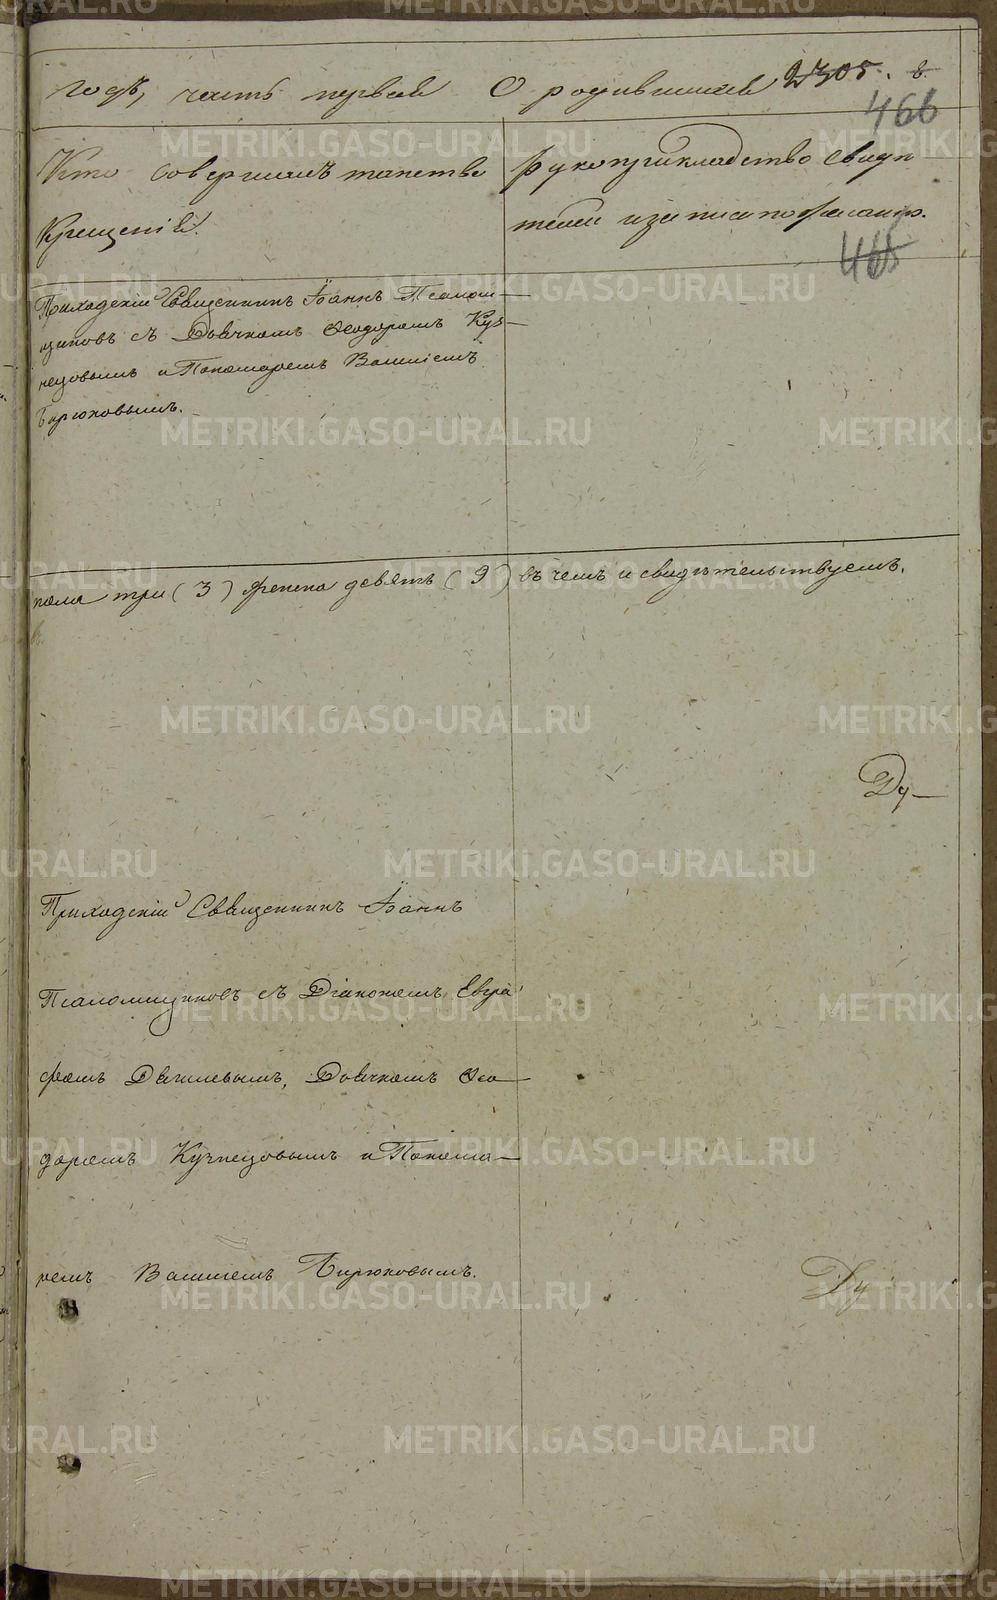 METRIKI.GASO-URAL.RU
годъ, часть первая О родившихся 2305. 8.
466
Кто совершалъ таинство
Крещенія.
рукоприкладство свидѣ
телей
465
Приходскій Священникъ Іоаннъ Псалом-
щиковъ съ Дьячкомъ Ѳеодоромъ Куз-
нецовымъ и Пономаремъ Василіемъ
Бирюковымъ.
пола три (3) женска девять (9) въ чемъ и свидѣтельствуемъ.
Ду-
Приходскій Священникъ Іоаннъ
Псаломщиковъ съ Діакономъ Евгра
фомъ Дягилевымъ, Дьячкомъ Ѳео-
доромъ Кузнецовымъ и Понома-
ремъ Василіемъ Бирюковымъ.
Ду